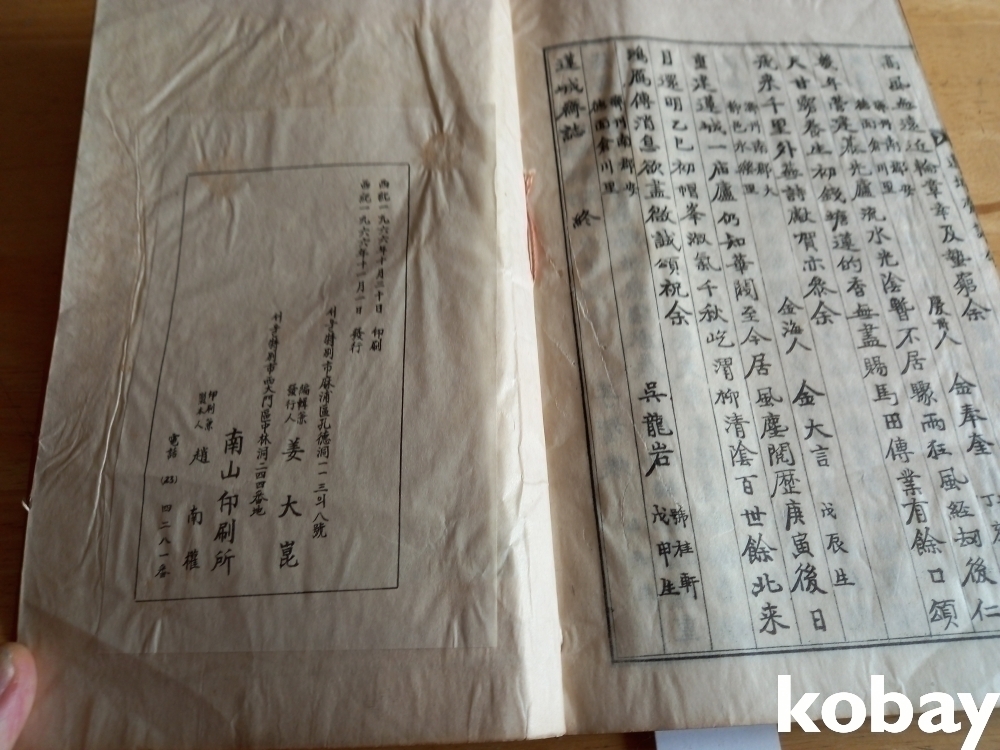 濟州南郡安
德面倉川里
金奉奎
年營建慕先廬流水光陰暫不居驟雨狂風經劫後仁
天甘露養生初錢塘蓮的香無盡賜馬田傳業有餘口頌
飛來千里外蕪詩獻賀亦
余
濟州南郡大
靜邑水
里
金海人
金大言
戊辰生
重建蓮城一店廬仍知華閥至今居風塵閱歷庚寅後日
月還明乙巳初帽峯淑氣千秋屹渭柳清陰百世餘北來
鴻雁傳消息欲盡微誠頌祝余
濟州南郡安
德面倉川里
吳龍岩
號桂軒
戊申生
蓮城齋誌
終
西紀一九六六年十月三十日 印刷
西紀一九六六年十一月一日 發行
서울特別市麻浦區孔德洞一一三의八號
編輯兼
發行人
姜大崑
서울特別市西大門區中林洞二四四番地
南山印刷所
印刷兼
製本人
趙南
電話 (23) 四二八一番
kobay